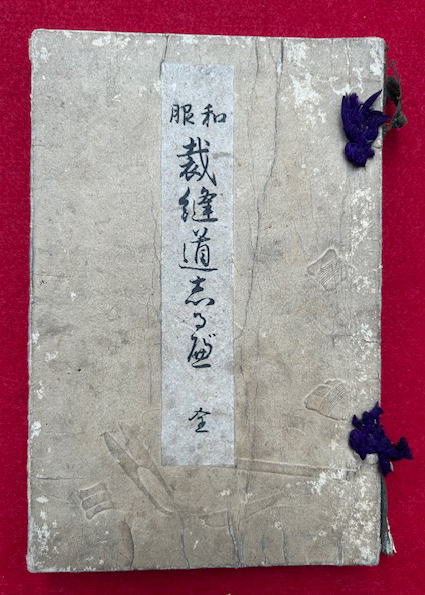 和服
裁縫道志るべ
全